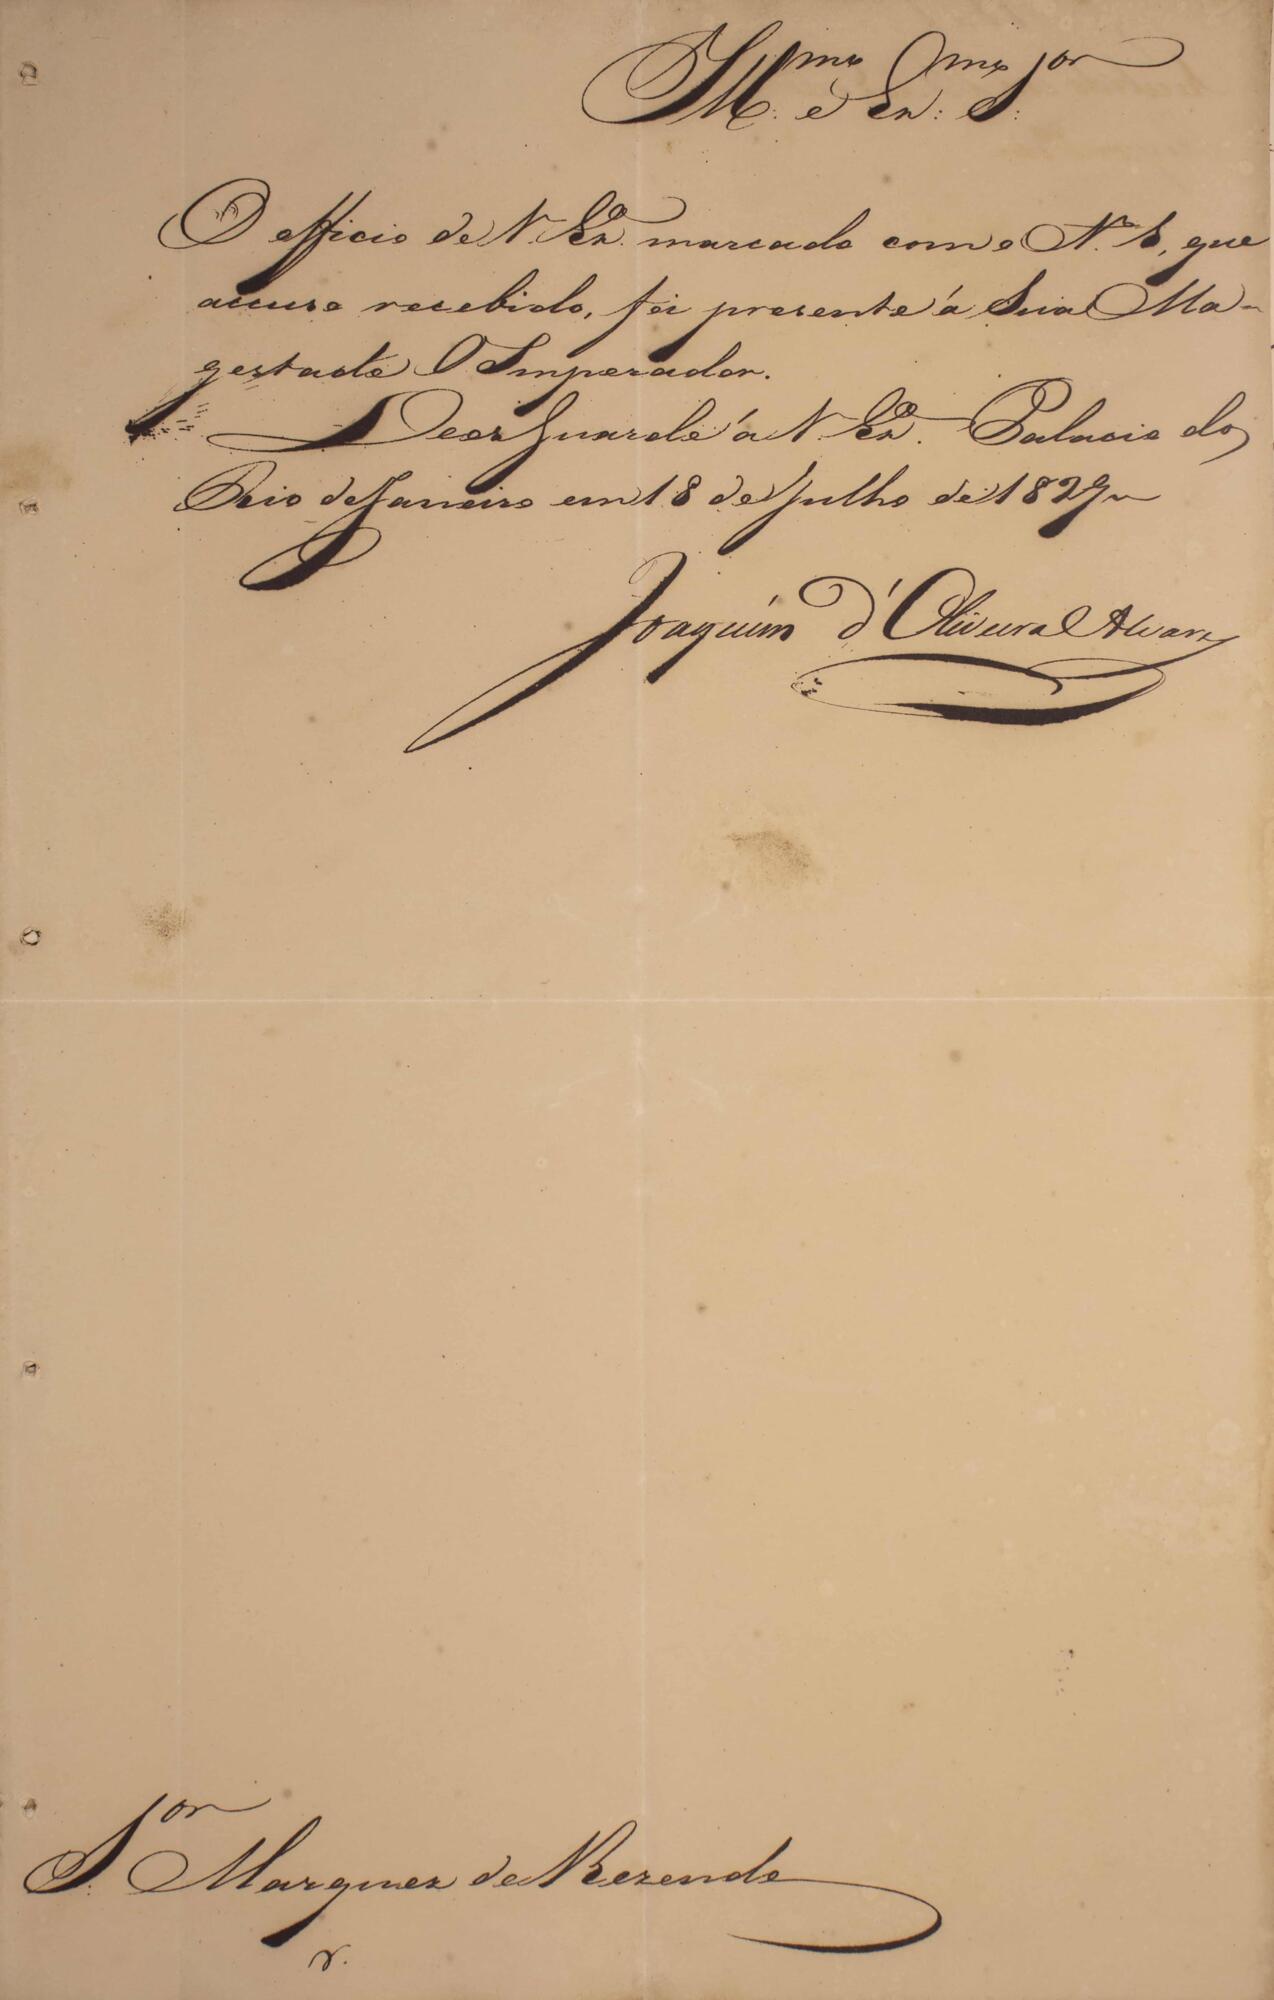 Ill.mo e Ex.mo S.or
O officio de V. Ex.a marcado com o N.o 5, que
accuso recebido, foi presente á Sua Ma-
gestade O Imperador.
Deos Guarde á V. Ex.a Palacio do
Rio de Janeiro em 18 de Julho de 1829
Joaquim d'Oliveira Alvares
S.or Marquez de Rezende